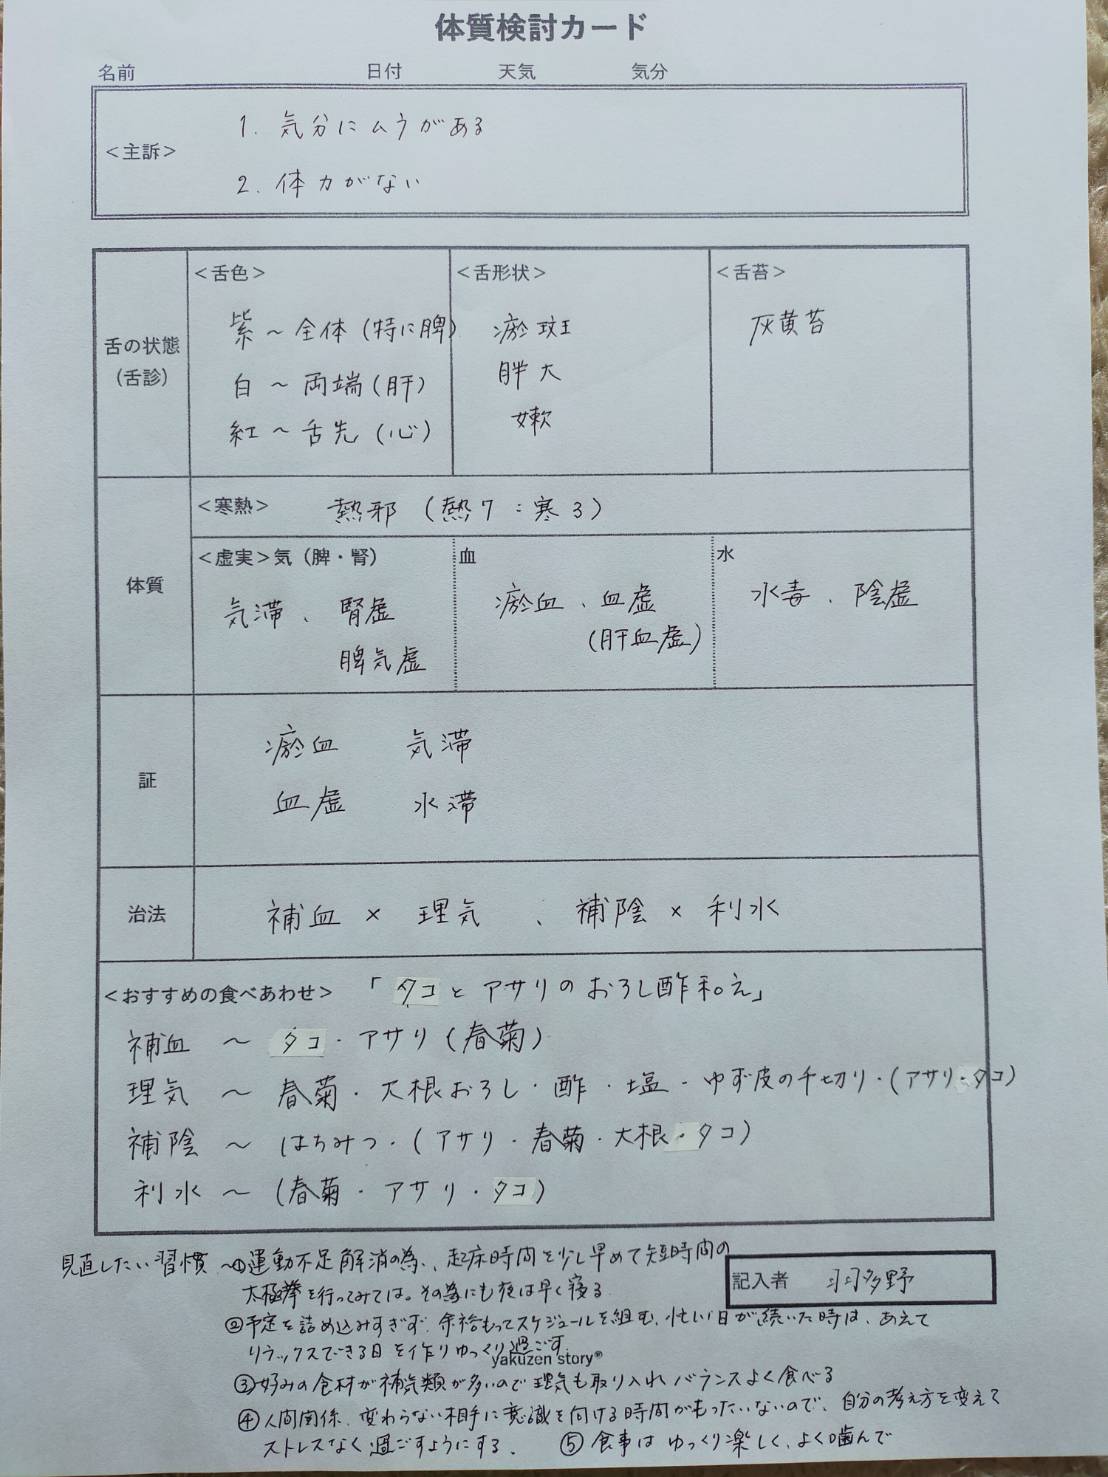 体質検討カード
名前 日付 天気 気分
<主訴>
1. 気分にムラがある
2. 体力がない
舌の状態
(舌診)
<舌色>
紫～全体(特に脾)
白～両端(肝)
紅～舌先(心)
<舌形状>
瘀斑
胖大
嫩
<舌苔>
灰黄苔
体質
<寒熱> 熱邪(熱7:寒3)
<虚実>気(脾・腎)
気滞、腎虚
脾気虚
血
瘀血、血虚
(肝血虚)
水
水毒、陰虚
証
瘀血 気滞
血虚 水滞
治法
補血×理気、補陰×利水
<おすすめの食べあわせ> 「タコとアサリのおろし酢和え」
補血～タコ・アサリ(春菊)
理気～春菊・大根おろし・酢・塩・ゆず皮の千切り・(アサリ・タコ)
補陰～はちみつ・(アサリ・春菊・大根・タコ)
利水～(春菊・アサリ・タコ)
見直したい習慣～①運動不足解消の為、起床時間を少し早めて短時間の
太極拳を行ってみては。その為にも夜は早く寝る
記入者 羽多野
②予定を詰め込みすぎず、余裕もってスケジュールを組む、忙しい日が続いた時は、あえて
リラックスできる日を作りゆっくり過ごす。
yakuzen story®
③好みの食材が補気類が多いので理気も取り入れバランスよく食べる
④人間関係、変わらない相手に意識を向ける時間がもったいないので、自分の考え方を変えて
ストレスなく過ごすようにする。 ⑤食事はゆっくり楽しく、よく噛んで